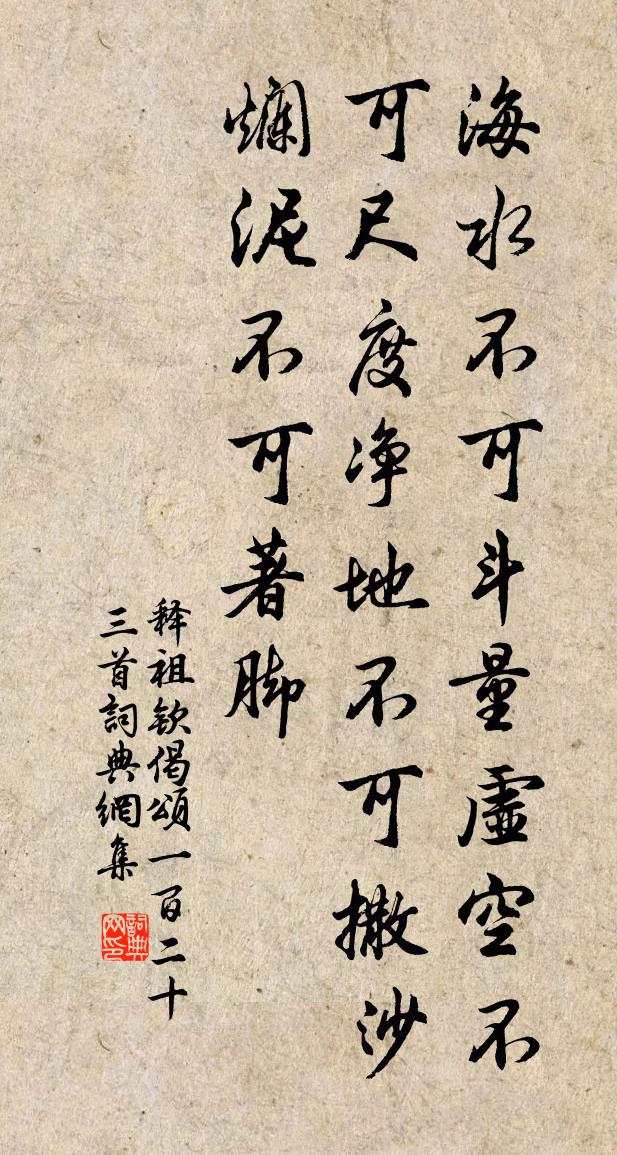 海水不可斗量虛空不
可尺度净地不可撒沙
爛泥不可著脚
释祖欽偈頌一百二十
三首詞典網集
詞典
网印